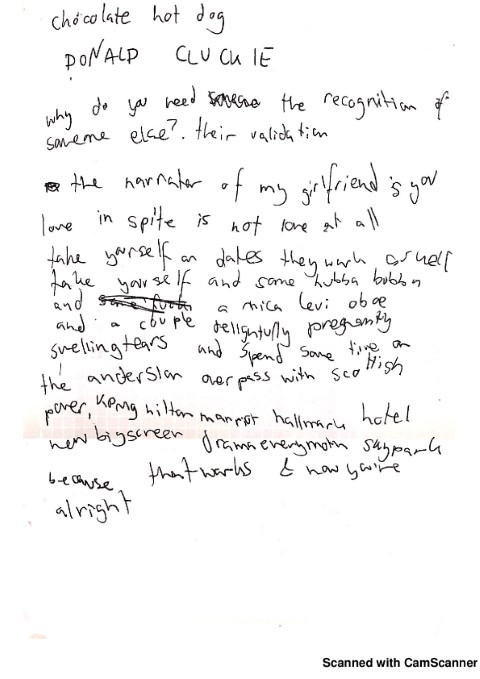 chocolate hot dog
DONALD CLUCKIE
why do you need the recognition of
someone else?. their validation
the narrator of my girlfriend is you
love in spite is not love at all
take yourself on dates they work as well
take yourself and some hubba bubba
and a mica levi oboe
and a couple delightfully pregnantly
swelling tears and spend some time on
the anderston overpass with scottish
power, kpmg hilton marriot hallmark hotel
new bigscreen drama skypark
because that works & now you're
alright
Scanned with CamScanner